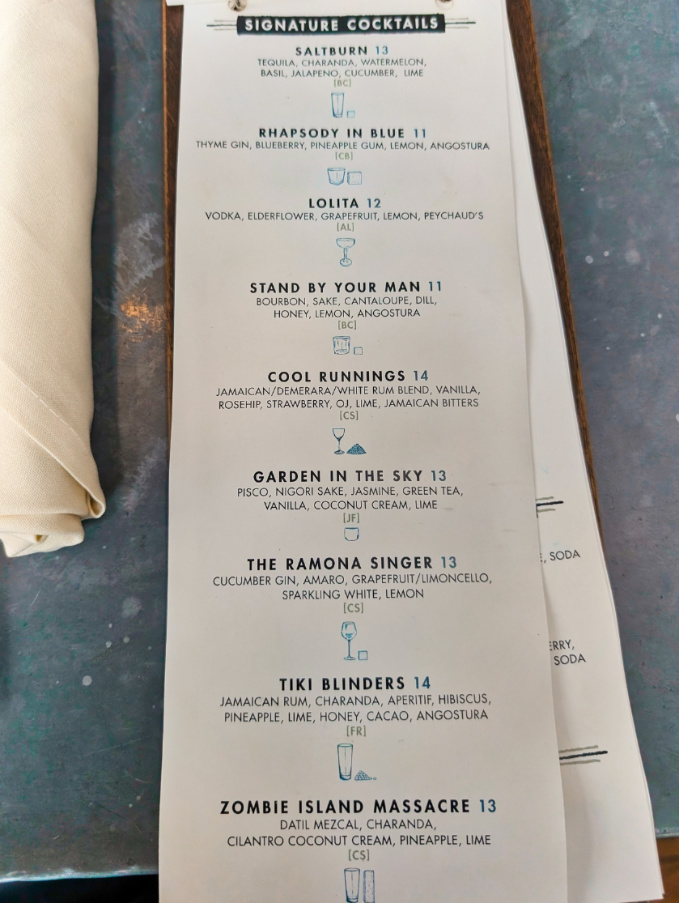 SIGNATURE COCKTAILS
SALTBURN 13
TEQUILA, CHARANDA, WATERMELON,
BASIL, JALAPENO, CUCUMBER, LIME
[BC]
RHAPSODY IN BLUE 11
THYME GIN, BLUEBERRY, PINEAPPLE GUM, LEMON, ANGOSTURA
[CB]
LOLITA 12
VODKA, ELDERFLOWER, GRAPEFRUIT, LEMON, PEYCHAUD'S
[AL]
STAND BY YOUR MAN 11
BOURBON, SAKE, CANTALOUPE, DILL,
HONEY, LEMON, ANGOSTURA
[BC]
COOL RUNNINGS 14
JAMAICAN/DEMERARA/WHITE RUM BLEND, VANILLA,
ROSEHIP, STRAWBERRY, OJ, LIME, JAMAICAN BITTERS
[CS]
GARDEN IN THE SKY 13
PISCO, NIGORI SAKE, JASMINE, GREEN TEA,
VANILLA, COCONUT CREAM, LIME
[JF]
THE RAMONA SINGER 13
CUCUMBER GIN, AMARO, GRAPEFRUIT/LIMONCELLO,
SPARKLING WHITE, LEMON
[CS]
TIKI BLINDERS 14
JAMAICAN RUM, CHARANDA, APERITIF, HIBISCUS,
PINEAPPLE, LIME, HONEY, CACAO, ANGOSTURA
[FR]
ZOMBIE ISLAND MASSACRE 13
DATIL MEZCAL, CHARANDA,
CILANTRO COCONUT CREAM, PINEAPPLE, LIME
[CS]
, SODA
ERRY,
SODA